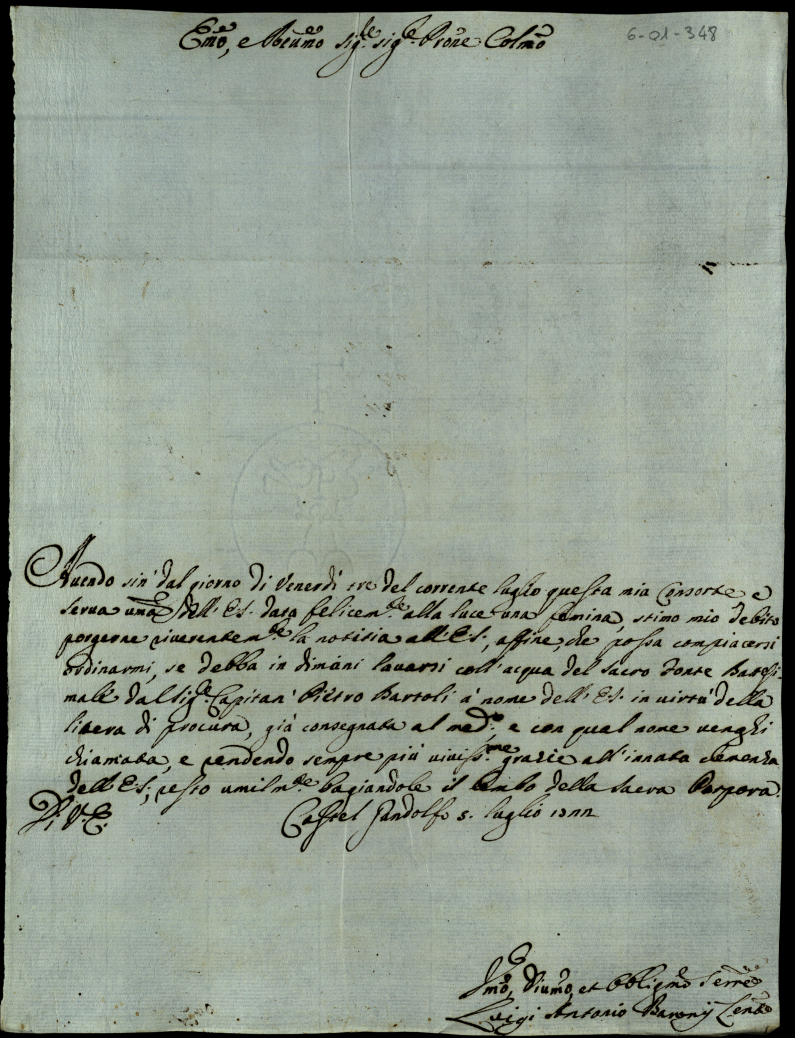 Emo, e Reumo sig.re sig.re Prone Colmo
6-01-348
Auendo sin' dal giorno di Venerdì tre del corrente luglio questa mia Consorte e
serua uma dell' E.S. data felicem.te alla luce una femina, stimo mio debito
porgerne riuerentem.te la notitia all' E.S., affine, che possa compiacersi
ordinarmi, se debba in dimani lauarsi coll' acqua del sacro Fonte Battesi-
male dal Sig.re Capitan' Piétro Bartoli a' nome dell' E.S. in virtu' della
libera di procura, già consegnata al med.o e con qual nome venghi
chiamata, e rendendo sempre più viuiss.me grazie all' innata clemenza
dell' E.S., resto umilm.te bagiandole il lembo della sacra Porpora.
Di V.E.
Castel Gandolfo 5. luglio
Umo, Diumo, et Obbligmo Serre
Luigi Antonio Baronij